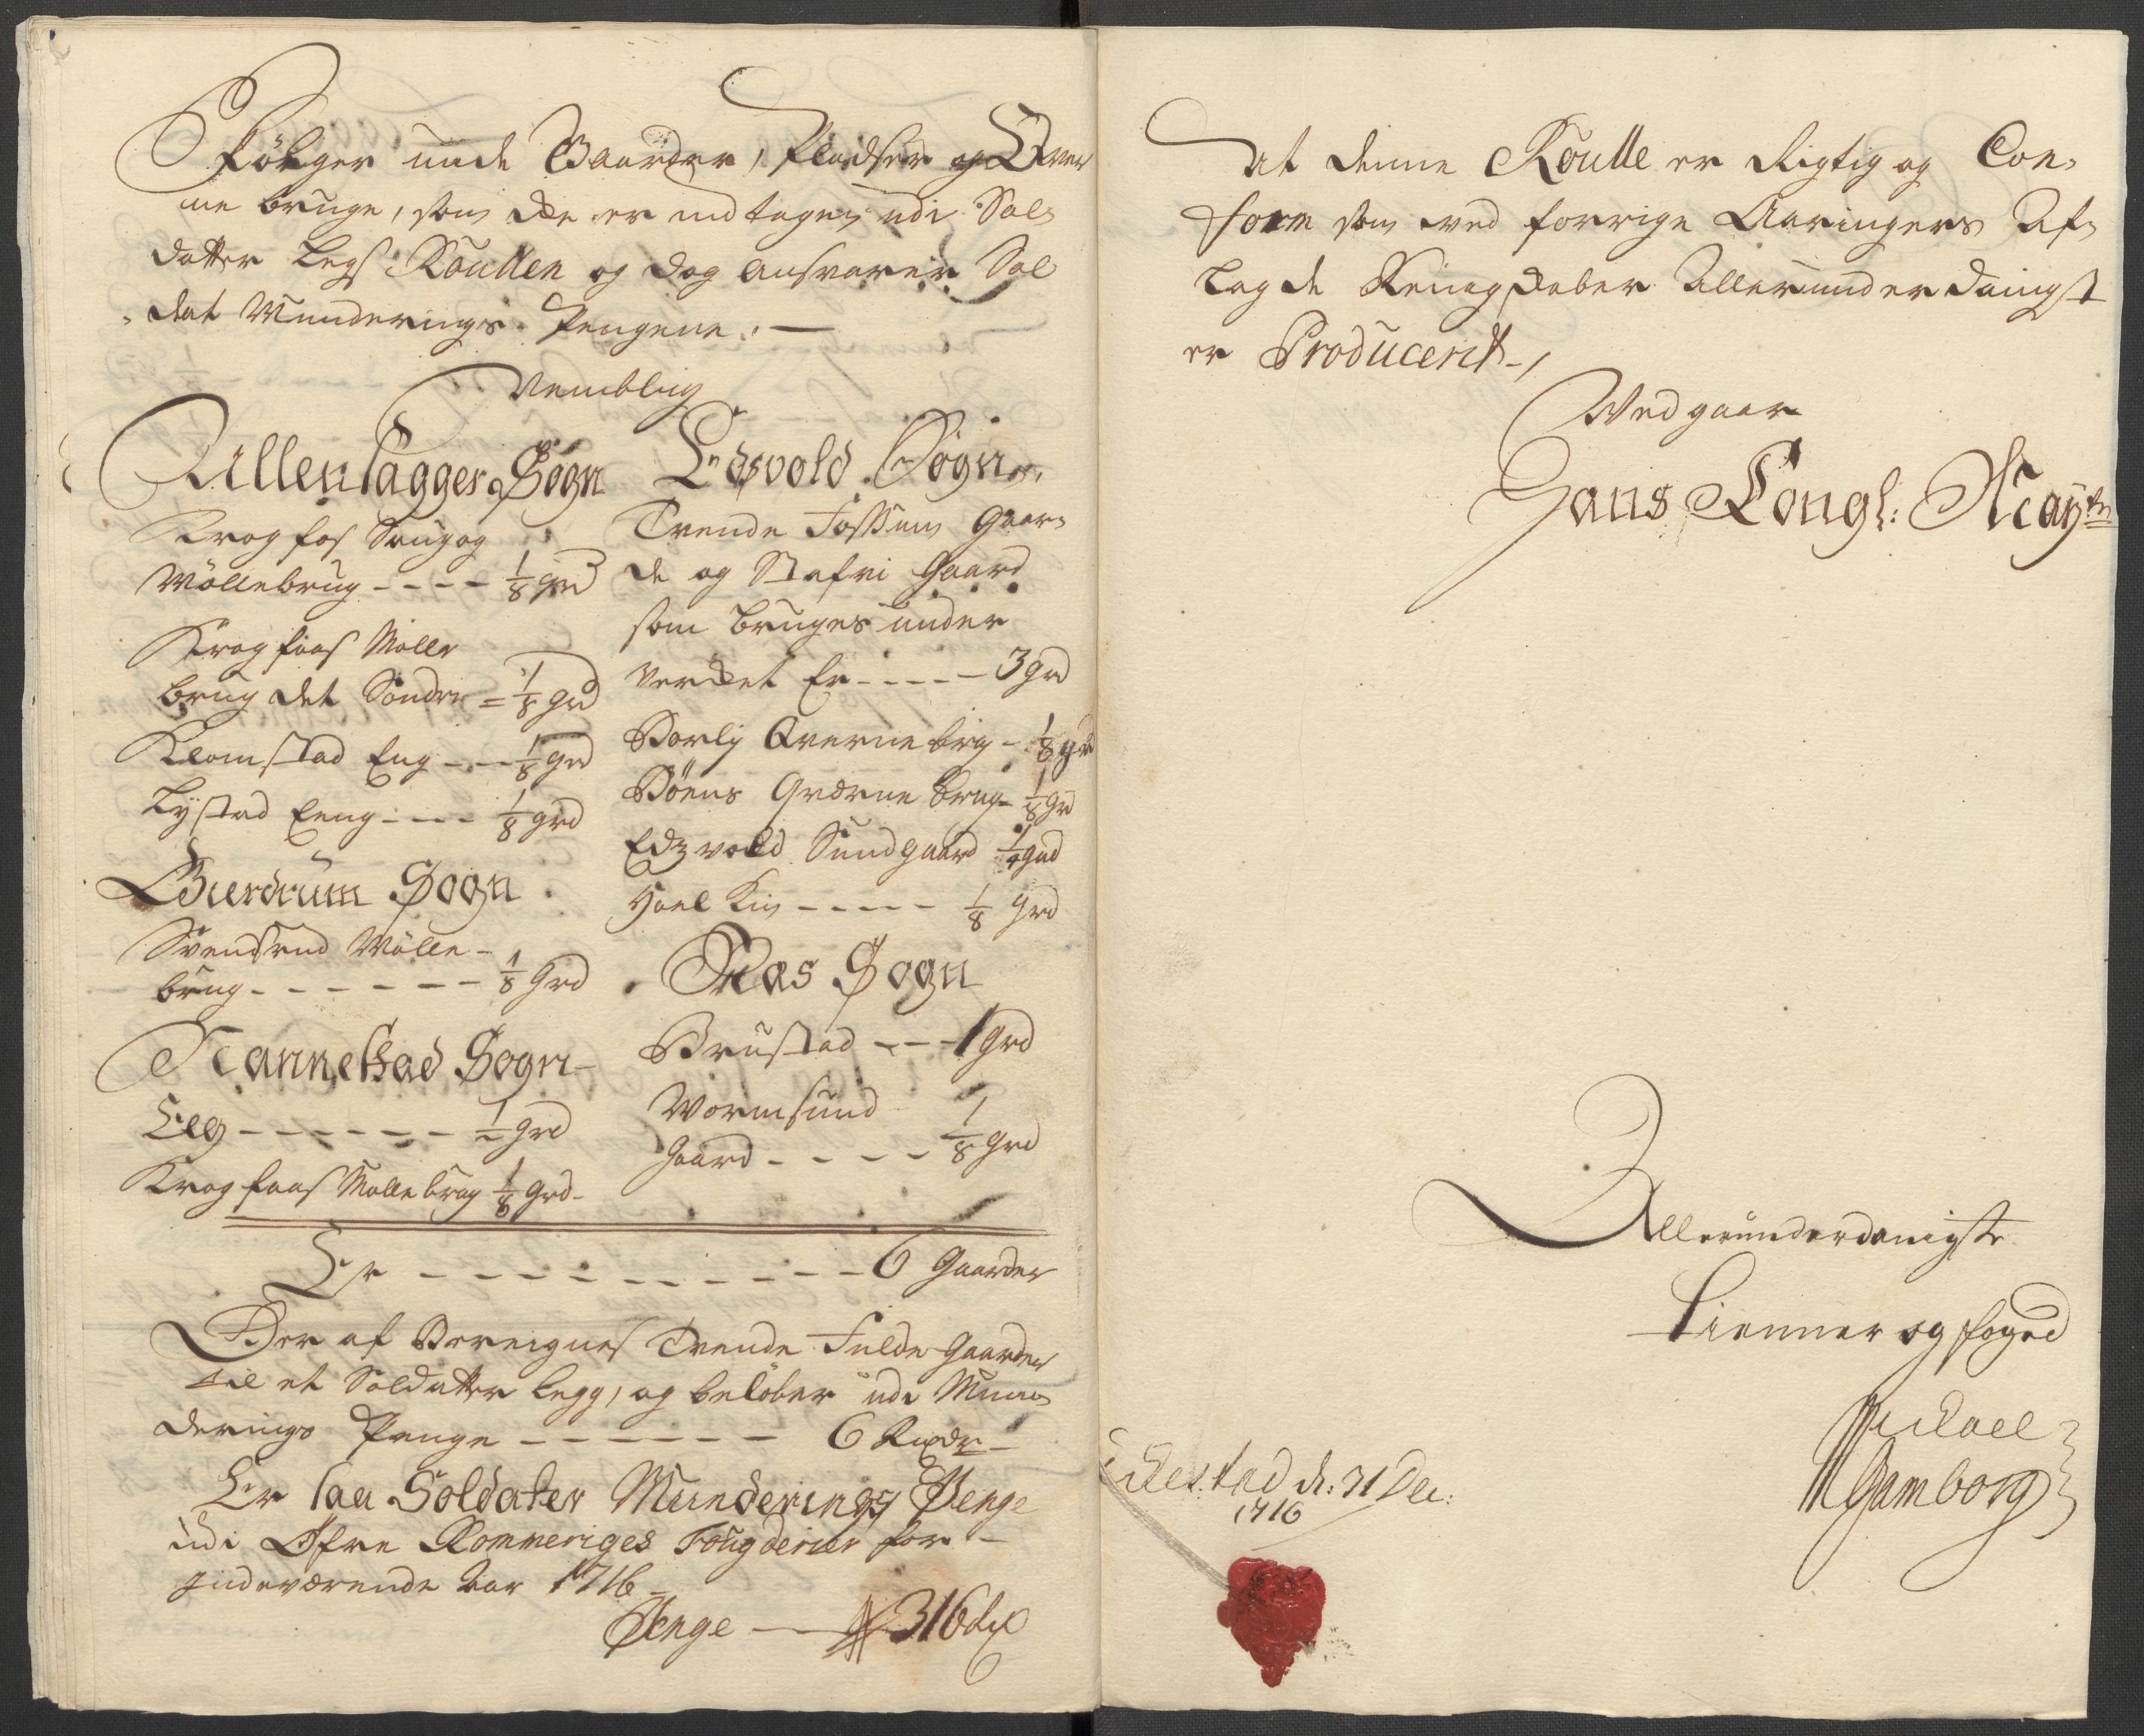 Følger nu de Gaarder, Pladser og Qver
ne bruge, som ey er indtagen udi Sol-
datter Legs Roullen og dog ansvarer Sol
dat Munderings Pengene. —
Nemblig
Ullensagger Sogn
Krogfos Saug og
Möllebrug - - - - 1/8 grd
Krogfoss Mölle
brug det Søndre = 1/8 grd
Klomstad Eng - - - 1/8 grd
Lystad Eeng - - - 1/8 grd
Gierdrum Sogn
Svendsrud Mölle-
brug - - - - - - 1/8 Grd
Nannestad Sogn
Elg - - - - - - 1/2 grd
Krogfoss Mölle brug 1/8 grd-
Edsvold Sogn
Trende Fossum Gaar-
de og Stafni Gaard
som bruges under
Verket Er - - - - 3 grd
Borlj Qvernebrug - 1/8 grd
Böens Qværne brug - 1/8 grd
Edzvold Sundgaard 1/4 grd
Hoel - - - - - 1/8 grd
Næs Sogn
Brustad - - - 1 Grd
Wormsund
Gaard - - - - 1/8 grd
Er - - - - - - - - - 6 Gaarder
Der af Beregnes Trende Fulde Gaarder
til et Soldatter Legg, og beløber udi Mun-
derings Penge - - - - - - 6 Rixdr
Er saa Soldater Munderings Penge
udi Øfre Rommeriges Fougderie for
Indeværende Aar 1716
Penge — 316 dr
At denne Roulle er Rigtig og Con-
form som ved forrige Aaringers Af-
lagde Reignskaber Allerunderdanigst
er Producerit,
Ved gaar
Hans Kongl: Mayts
Allerunderdanigste
Tienner og foged
Michael
Gamborg
d: 31 Dec:
1716